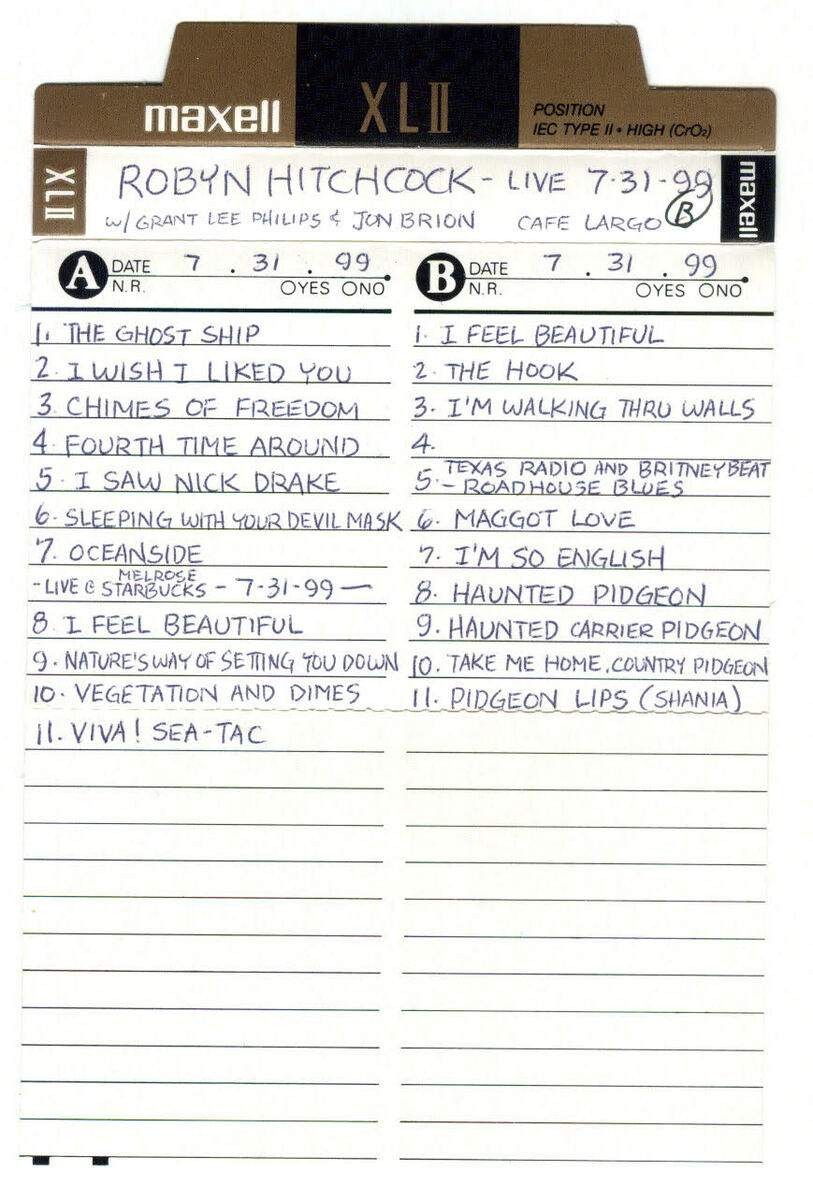 maxell XLII POSITION
IEC TYPE II • HIGH (CrO₂)
XLII ROBYN HITCHCOCK - LIVE 7-31-99 maxell
W/ GRANT LEE PHILIPS & JON BRION CAFE LARGO B
A DATE 7 . 31 . 99
N.R. OYES ONO
1. THE GHOST SHIP
2. I WISH I LIKED YOU
3. CHIMES OF FREEDOM
4. FOURTH TIME AROUND
5. I SAW NICK DRAKE
6. SLEEPING WITH YOUR DEVIL MASK
7. OCEANSIDE
MELROSE
-LIVE @ STARBUCKS - 7-31-99 —
8. I FEEL BEAUTIFUL
9. NATURE'S WAY OF SETTING YOU DOWN
10. VEGETATION AND DIMES
11. VIVA! SEA-TAC
B DATE 7 . 31 . 99
N.R. OYES ONO
1. I FEEL BEAUTIFUL
2. THE HOOK
3. I'M WALKING THRU WALLS
4.
5. TEXAS RADIO AND BRITNEYBEAT
- ROADHOUSE BLUES
6. MAGGOT LOVE
7. I'M SO ENGLISH
8. HAUNTED PIDGEON
9. HAUNTED CARRIER PIDGEON
10. TAKE ME HOME, COUNTRY PIDGEON
11. PIDGEON LIPS (SHANIA)